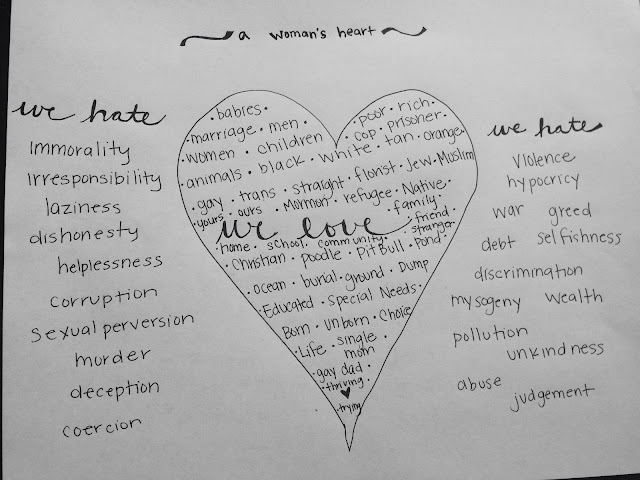 a woman's heart
we hate
Immorality
Irresponsibility
laziness
dishonesty
helplessness
corruption
sexual perversion
murder
deception
coercion
• babies •
• marriage • men •
women • children
• animals • black • white • tan • orange
poor • rich •
• cop • prisoner •
• gay • trans • straight • florist • Jew • Muslim
• yours • ours • Mormon • refugee • Native
• family •
we love
friend
stranger
• home • school • community •
• Christian • poodle • Pit Bull • Pond •
• ocean • burial • ground • Dump
• Educated • Special Needs •
Born • Unborn • Choice
• Life • single mom
• gay dad •
• thriving •
♥
• trying
we hate
violence
hypocricy
war greed
debt selfishness
discrimination
mysogeny wealth
pollution
unkindness
abuse
judgement